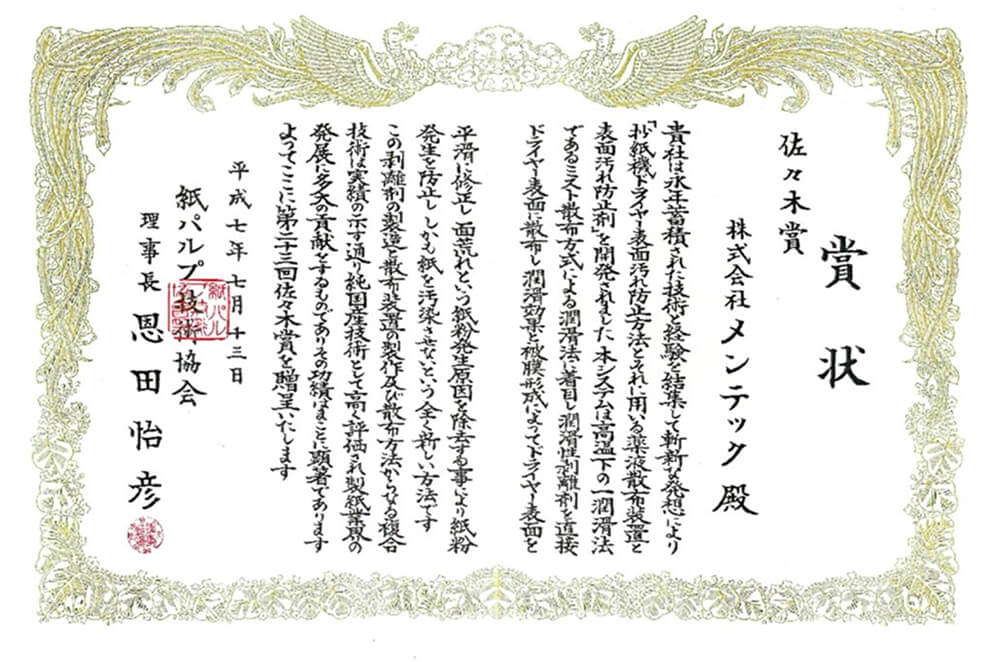 賞状
佐々木賞
株式会社メンテック殿
貴社は永年蓄積された技術と経験を結集して斬新な発想により
「抄紙機ドライヤー表面汚れ防止方法とそれに用いる薬液散布装置と
表面汚れ防止剤」を開発されました本システムは高温下の一潤滑法
であるミスト散布方式による潤滑法に着目し潤滑性剥離剤を直接
ドライヤー表面に散布し潤滑効果と被膜形成によってドライヤー表面を
平滑に修正し面荒れという紙粉発生原因を除去する事により紙粉
発生を防止ししかも紙を汚染させないという全く新しい方法です
この剥離剤の製造と散布装置の製作及び散布方法からなる複合
技術は実績の示す通り純国産技術として高く評価され製紙業界の
発展に多大の貢献をするものでありその功績はまことに顕著であります
よってここに第二十三回佐々木賞を贈呈いたします
平成七年七月十三日
紙パルプ技術協会
理事長 恩田怡彦